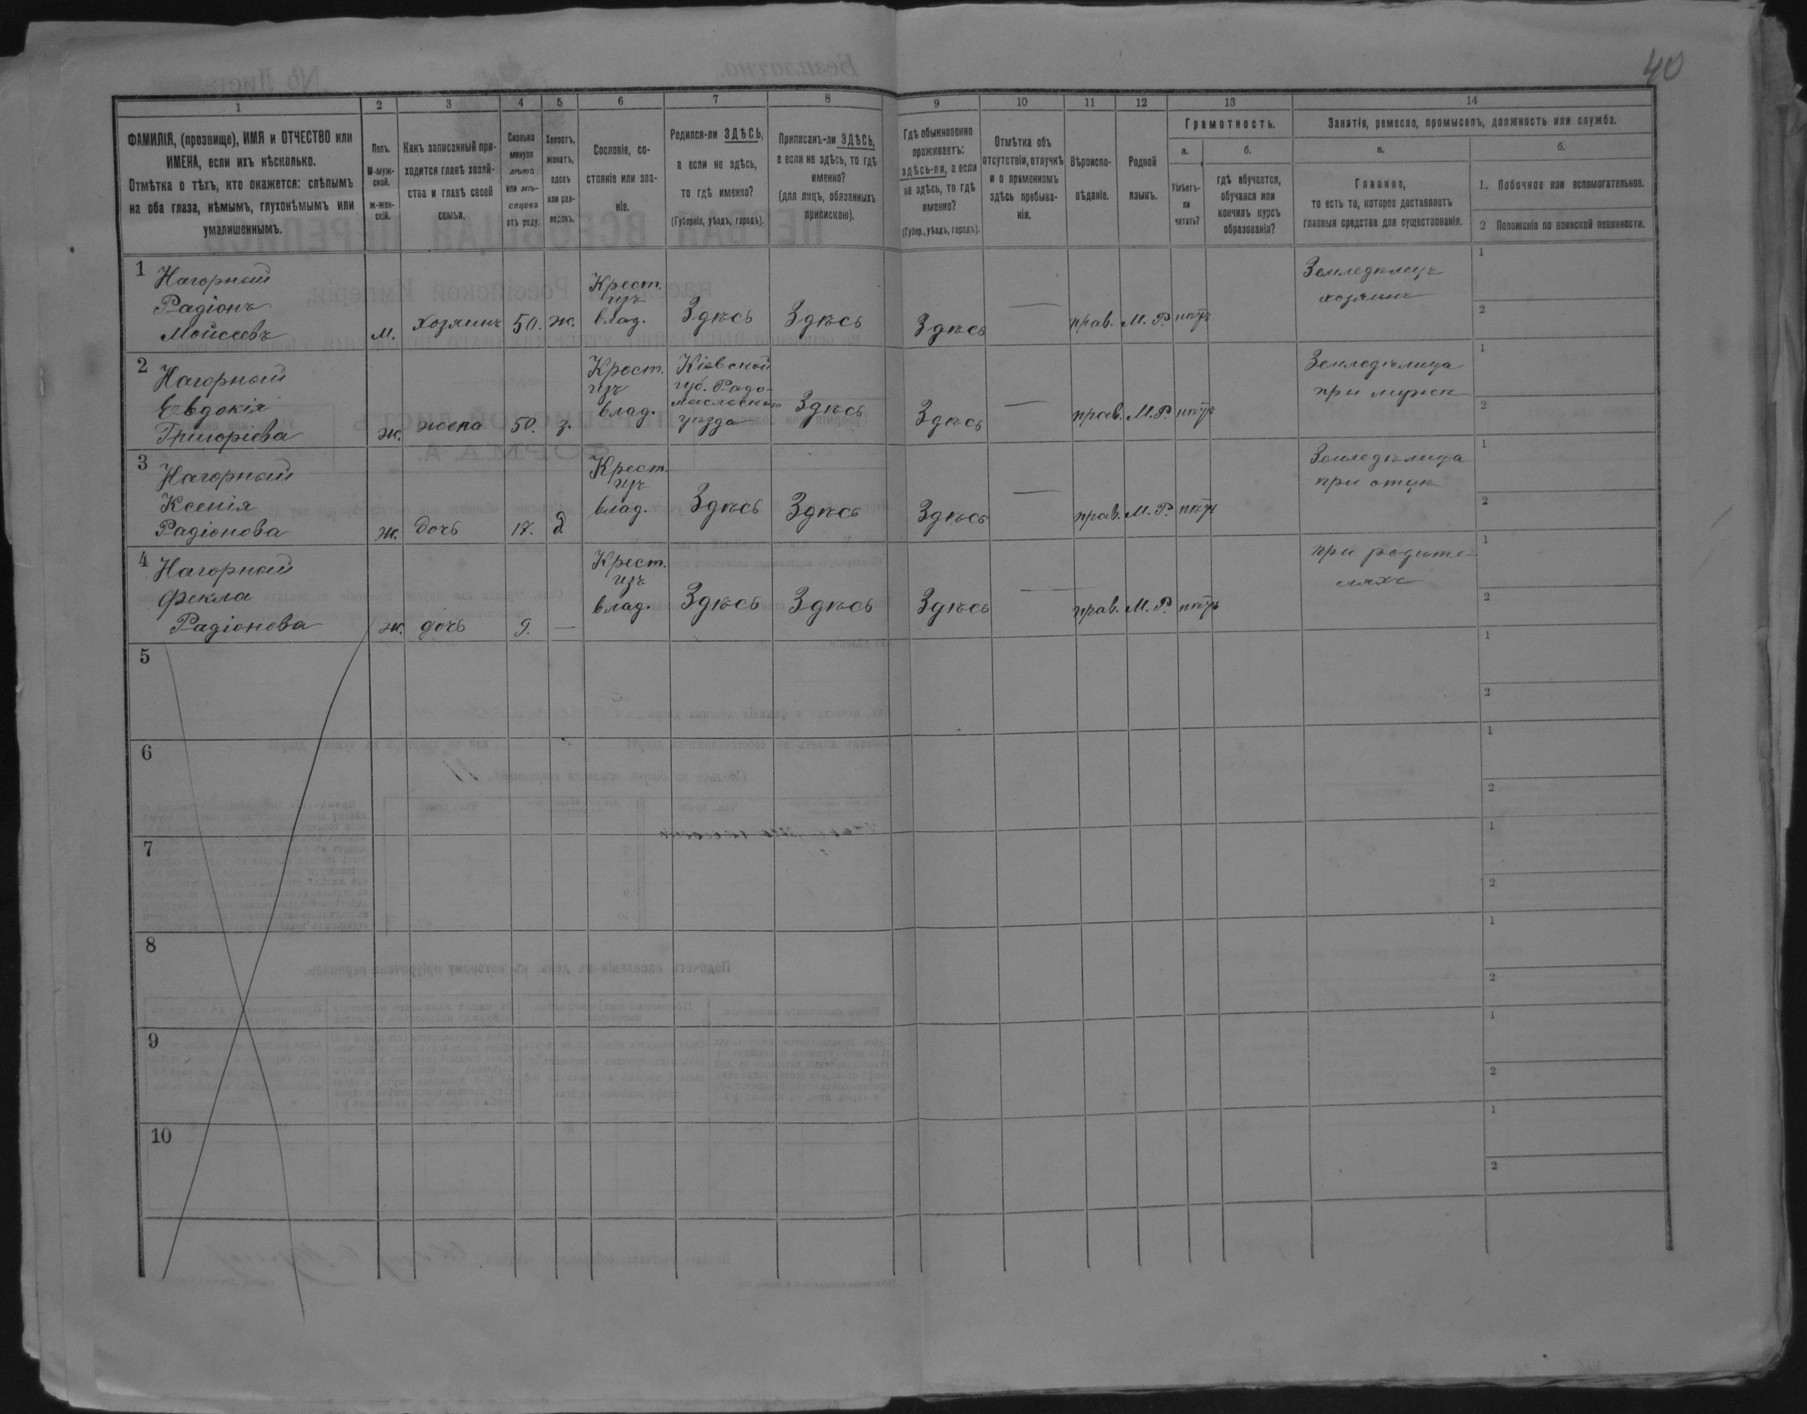 40
1 2 3 4 5 6 7 8 9 10 11 12 13 14
ФАМИЛІЯ, (прозвище), ИМЯ и ОТЧЕСТВО или
ИМЕНА, если ихъ нѣсколько.
Отмѣтка о тѣхъ, кто окажется: слѣпымъ
на оба глаза, нѣмымъ, глухонѣмымъ или
умалишеннымъ.
Полъ.
М-муж-
ской.
Ж-жен-
скій.
Какъ записанный при-
ходится главѣ хозяй-
ства и главѣ своей
семьи.
Сколько
минуло
лѣтъ
или мѣ-
сяцевъ
отъ роду.
Холостъ,
женатъ,
вдовъ
или раз-
веденъ.
Сословіе, со-
стояніе или зва-
ніе.
Родился-ли ЗДѢСЬ,
а если не здѣсь,
то гдѣ именно?
(Губернія, уѣздъ, городъ).
Приписанъ-ли ЗДѢСЬ,
а если не здѣсь, то гдѣ
именно?
(для лицъ, обязанныхъ
припискою).
Гдѣ обыкновенно
проживаетъ:
здѣсь-ли, а если
не здѣсь, то гдѣ
именно?
(Губер., уѣздъ, городъ).
Отмѣтка объ
отсутствіи, отлучкѣ
и о временномъ
здѣсь пребыва-
ніи.
Вѣроиспо-
вѣданіе.
Родной
языкъ.
Грамотность.
а.
Умѣетъ-
ли
читать?
б.
гдѣ обучается,
обучался или
кончилъ курсъ
образованія?
Занятіе, ремесло, промыселъ, должность или служба.
а.
Главное,
то есть то, которое доставляетъ
главныя средства для существованія.
б.
1. Побочное или вспомогательное.
2 Положеніе по воинской повинности.
1 Нагорный
Радіонъ
Моисеевъ
м. хозяинъ 50. ж.
Крест.
изъ
влад.
Здѣсь Здѣсь Здѣсь — прав. М. Р. нѣтъ
Земледѣлецъ
хозяинъ
1
2
2 Нагорный
Евдокія
Григорьева
ж. жена 50. з.
Крест.
изъ
влад.
Кіевской
губ. Радо-
мысльскаго
уѣзда
Здѣсь Здѣсь — прав. М. Р. нѣтъ
Земледѣлица
при мужѣ
1
2
3 Нагорный
Ксенія
Радіонова
ж. дочь 17. д
Крест.
изъ
влад.
Здѣсь Здѣсь Здѣсь — прав. М. Р. нѣтъ
Земледѣлица
при отцѣ
1
2
4 Нагорный
Фекла
Радіонова
ж. дочь 9. —
Крест.
изъ
влад.
Здѣсь Здѣсь Здѣсь — прав. М. Р. нѣтъ
при родите-
ляхъ
1
2
5
1
2
6
1
2
7
1
2
8
1
2
9
1
2
10
1
2